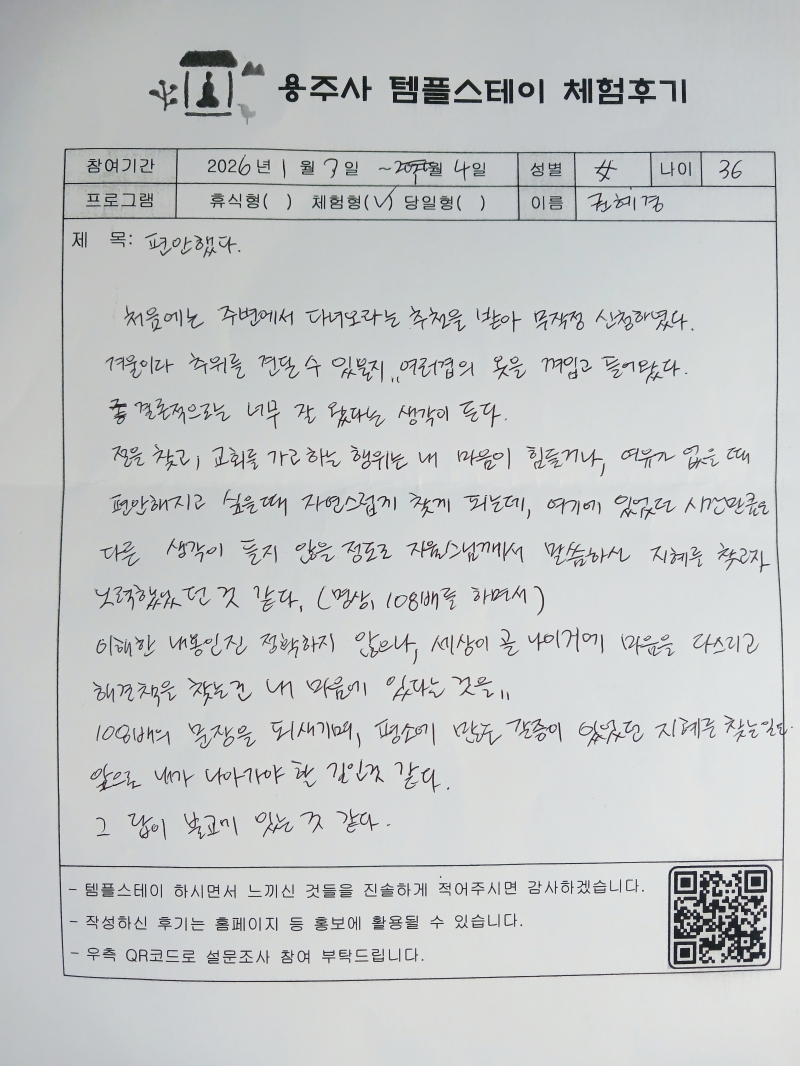 용주사 템플스테이 체험후기
참여기간 2026년 1월 3일 ~ 월 4일 성별 女 나이 36
프로그램 휴식형( ) 체험형(√) 당일형( ) 이름 권혜경
제 목: 편안했다.
처음에는 주변에서 다녀오라는 추천을 받아 무작정 신청하였다.
겨울이다 추위를 견딜 수 있을지,, 여러겹의 옷을 껴입고 들어왔다.
결론적으로는 너무 잘 왔다는 생각이 든다.
절을 찾고, 교회를 가고 하는 행위는 내 마음이 힘들거나, 여유가 없을 때
편안해지고 싶을때 자연스럽게 찾게 되는데, 여기에 있었던 시간만큼은
다른 생각이 들지 않을 정도로 스님께서 말씀하신 지혜를 찾고자
노력했었던 것 같다. (명상, 108배를 하면서)
이해한 내용인진 정확하지 않으나, 세상이 곧 나이거에 마음을 다스리고
해결책을 찾는건 내 마음에 있다는 것을,,
108배의 문장을 되새기며, 평소에 많은 갈증이 있었던 지혜를 찾는일은
앞으로 내가 나아가야 할 길인것 같다.
그 답이 불교에 있는 것 같다.
- 템플스테이 하시면서 느끼신 것들을 진솔하게 적어주시면 감사하겠습니다.
- 작성하신 후기는 홈페이지 등 홍보에 활용될 수 있습니다.
- 우측 QR코드로 설문조사 참여 부탁드립니다.